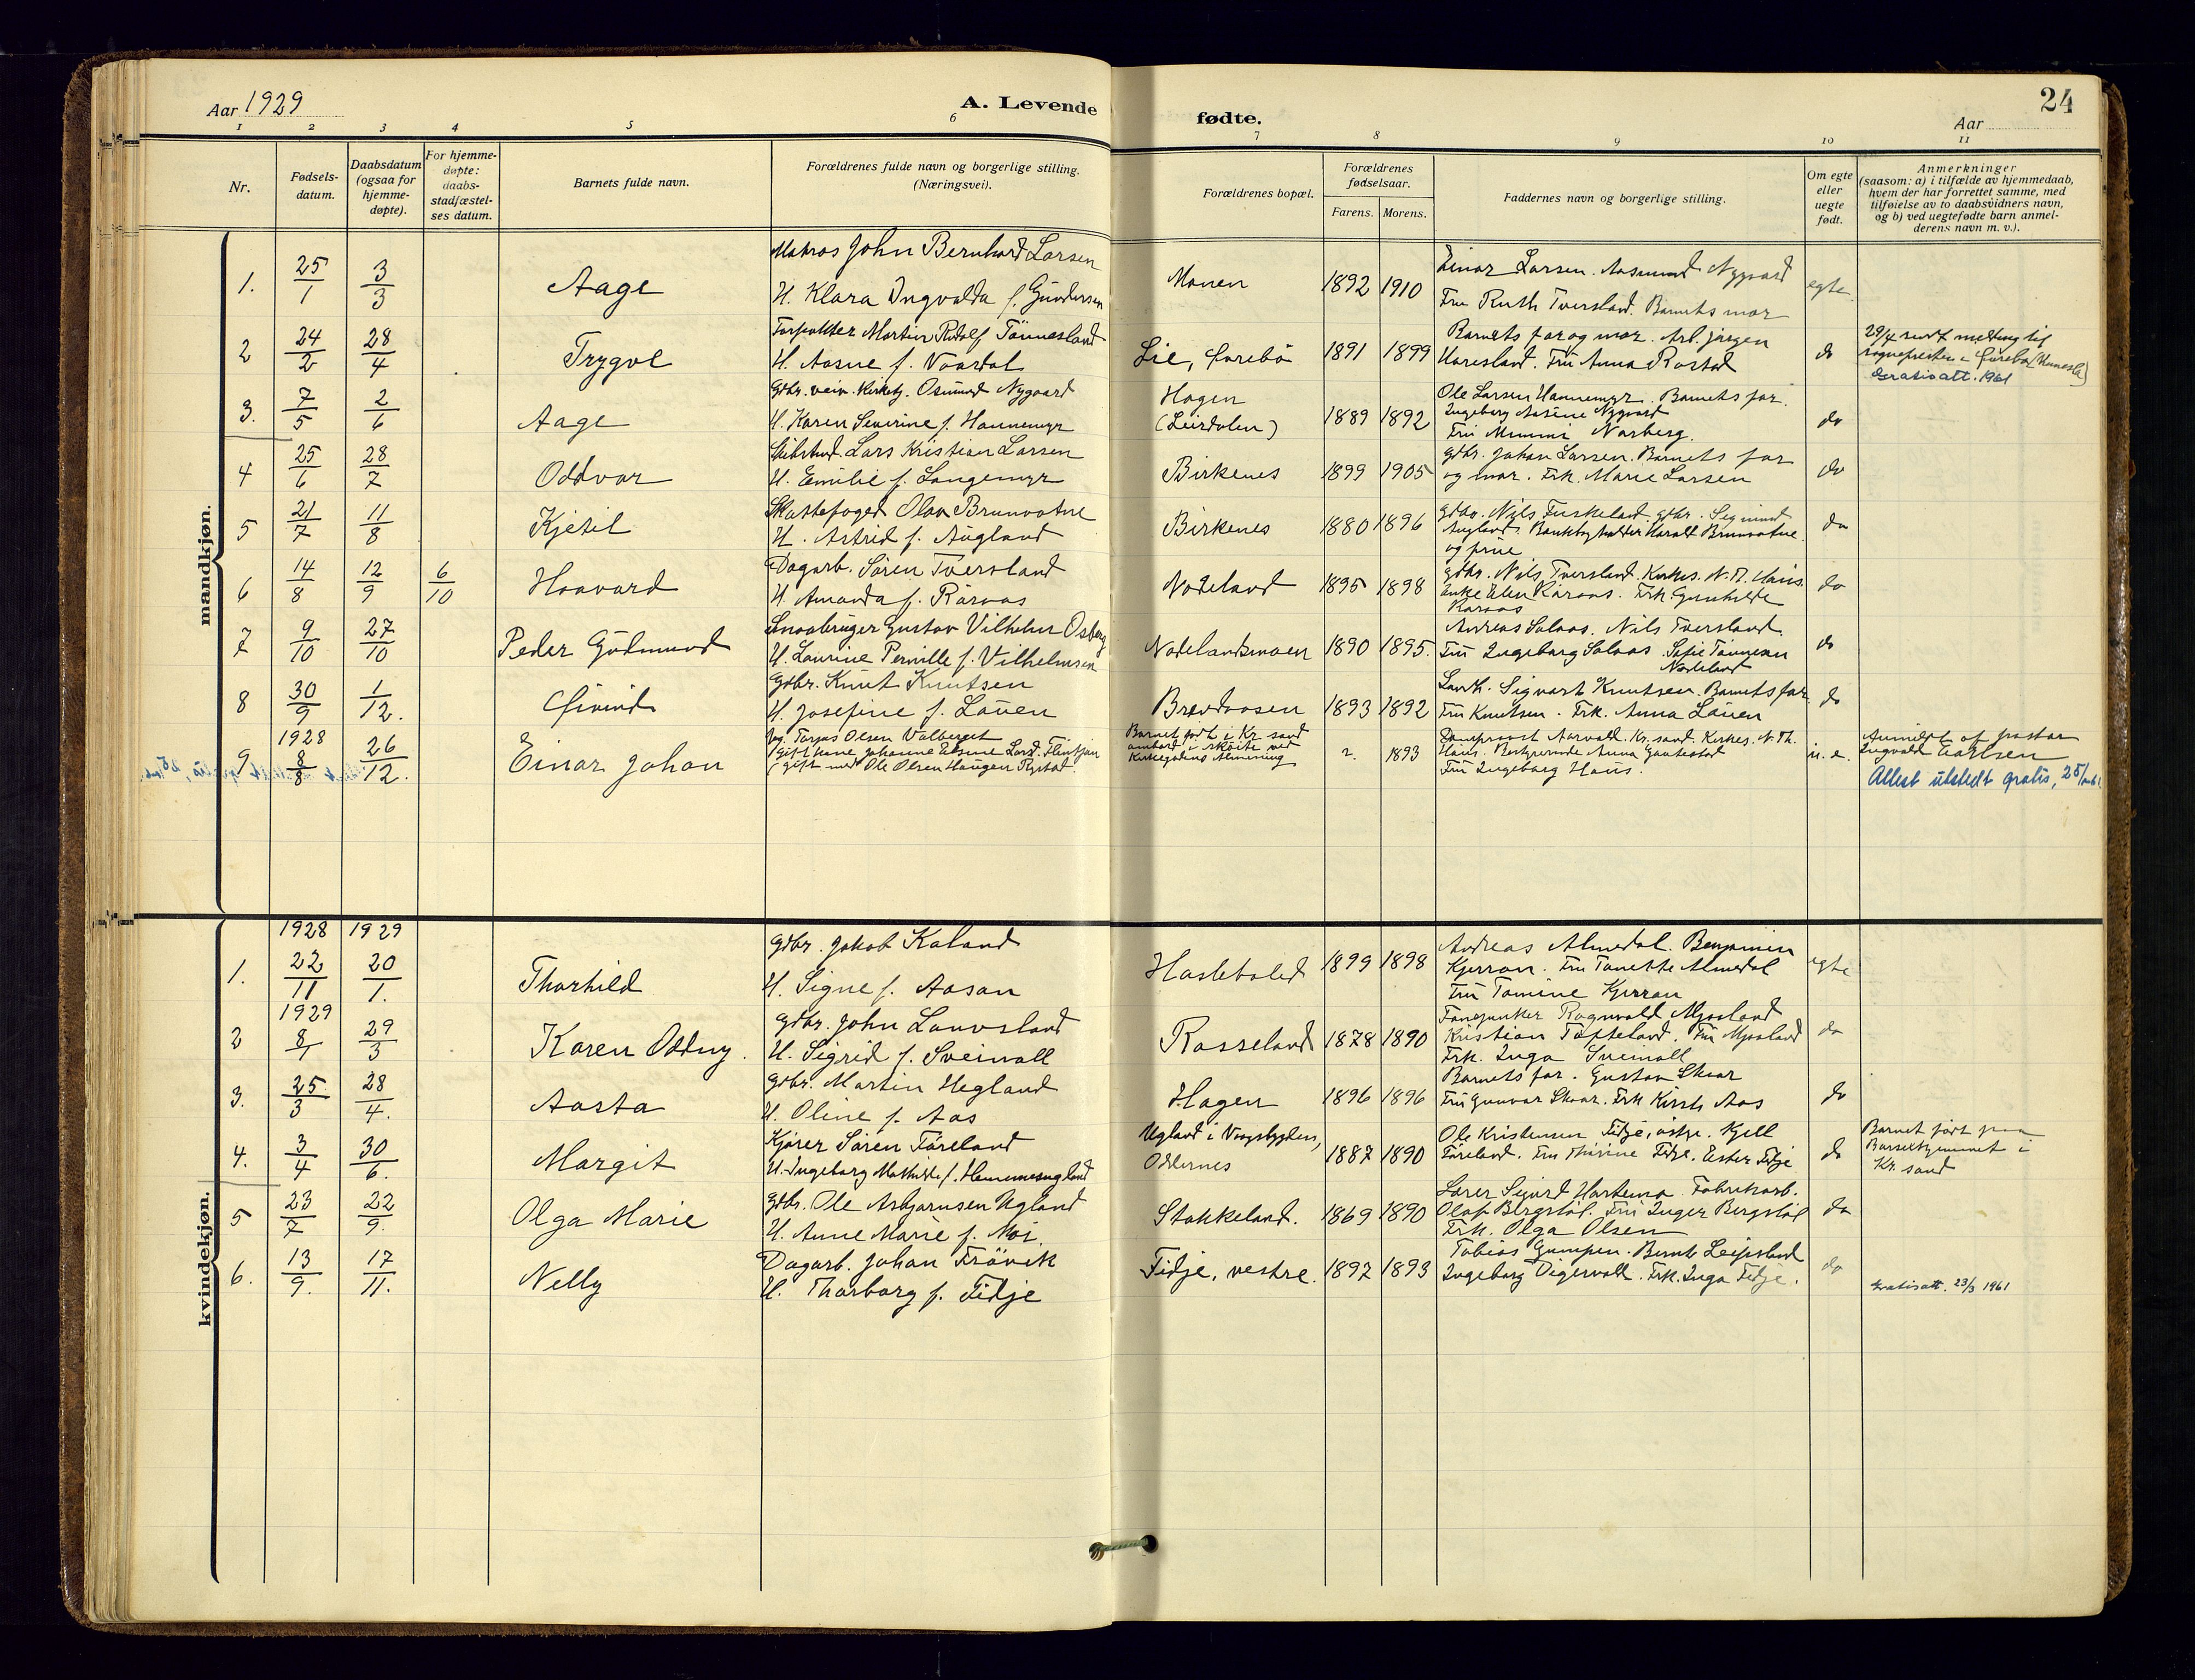 Aar 1929
A. Levende
fødte.
24
Aar
1 2 3 4 5 6 7 8 9 10 11
Nr.
Fødsels-
datum.
Daabsdatum
(ogsaa for
hjemme-
døpte).
For hjemme-
døpte:
daabs-
stadfæstel-
ses datum.
Barnets fulde navn.
Forældrenes fulde navn og borgerlige stilling.
(Næringsvei).
Forældrenes bopæl.
Forældrenes
fødselsaar.
Farens. Morens.
Faddernes navn og borgerlige stilling.
Om egte
eller
uegte
født.
Anmerkninger
(saasom: a) i tilfælde av hjemmedaab,
hvem der har forrettet samme, med
tilføielse av to daabsvidners navn,
og b) ved uegtefødte barn anmel-
derens navn m. v.).
mandkjøn.
1. 25/1 3/3 Aage
Matros John Bernhard Larsen
H. Klara Ingvalda f. Gundersen
Monen 1892 1910
Einar Larsen. Aasmund Nygaard
Fru Ruth Tversland. Barnets mor
egte
2 24/2 28/4 Trygve
Martin Rudolf Tönnesland
H. Aasne f. Vaardal
Lie, 1891 1899
Barnets far og mor. Arb. Jörgen
Haresland. Fru Anna Rostad
do
29/4 sendt melding til
sognepresten i
Gratisatt. 1961
3. 7/5 2/6 Aage
Gdbr. Osmund Nygaard
H. Karen Severine f. Hannemyr
Hagen
(Leirdalen) 1889 1892
Ole Larsen Hannemyr. Barnets far.
Ingeborg Nygaard
Fru Mimmi Norberg.
do
4 25/6 28/7 Oddvar
Lars Kristian Larsen
H. Emilie f. Langemyr
Birkenes 1899 1905
Gdbr. Johan Larsen. Barnets far
og mor. Frk. Marie Larsen
do
5 21/7 11/8 Kjetil
Skattefoged Olav Brunvatne
H. Astrid f. Augland
Birkenes 1880 1896
Gdbr. Nils Fuskeland. Gdbr. Sigmund
Augland. Bankbokholder Harald Brunvatne
og frue
do
6 14/8 12/9 6/10 Haavard
Dagarb. Sören Tversland
H. Amanda f. Råraas
Nodeland 1895 1898
Gdbr. Nils Tversland. Kirkes. N. Th. Haus.
Enke Elen Råraas. Frk. Gunhilde
Raraas
do
7 9/10 27/10 Peder Gudmund
Gustav Vilhelm Osberg
H. Laurine Pernille f. Vilhelmsen
Nodelandsmoen 1890 1895.
Andreas Salaas. Nils Tversland.
Fru Ingeborg Salaas. Sofie Tönnesen
Nodeland
do
8 30/9 1/12. Eivind
Gdbr. Knut Knutsen
H. Josefine f. Lauen
Brevdaasen 1893 1892
Sigvart Knutsen. Barnets far
Fru Knutsen. Frk. Anna Lauen
do
9 1928 8/8 26/12. Einar Johan
Tarjus Olsen Valberget
Gift kone Johanne Elvine Lars. Flintjån
(gift med Ole Olsen Haugen Rystad.
Barnet födt i Kr. sand
ombord i skøite ved
Kirkegadens Almening
? 1893
Domprovst Aarvold Kr. sand. Kirkes. N. Th.
Haus. Bestyrerinde Anna Gautestad
Fru Ingeborg Haus.
u. e.
Anmeldt af pastor
Ingvald Carlsen
Attest utstedt gratis, 25/
kvindekjøn.
1. 1928 22/11 1929 20/1. Thorhild
Gdbr. Jakob Kaland
H. Signe f. Aasan
Haslebaled 1899 1898
Andreas Almedal. Benjamin
Kjerran. Fru Tanette Almedal
Fru Tomine Kjerran
egte
2 1929 8/1 29/3 Karen Oddny.
Gdbr. John Lauvsland
H. Sigrid f. Sveinall
Rosseland 1878 1890
Fanejunker Ragnvald Mjaaland
Kristian Tofteland. Fru Mjaaland
Frk. Inga Sveinall
do
3. 25/3 28/4. Aasta
Gdbr. Martin Hegland
H. Oline f. Aas
Hagen 1896 1896
Barnets far. Gustav Skaar
Fru Gunvor Skaar. Frk Kirsti Aas
do
4. 3/4 30/6. Margit
Kjörer Sören Föreland
H. Ingeborg Mathilde f. Hammesugland
Ugland i Vaagsbygden,
Oddernes 1887 1890
Ole Kristensen Fidje, östre. Kjell
Föreland. Fru Thirine Fidje. Ester Fidje
do
Barnet født paa
Barselhjemmet i
Kr. sand
5 23/7 22/9. Olga Marie
Gdbr. Ole Asbjørnsen Ugland
H. Anne Marie f. Moi.
Stokkeland. 1869 1890
Lærer Sigurd Hortemo. Fabrikarb.
Olaf Bergstöl. Fru Inger Bergstöl
Frk. Olga Olsen
do
6. 13/9. 17/11. Nelly
Dagarb. Johan Frövik
H. Thorborg f. Fidje
Fidje, vestre. 1892 1893
Tobias Gumpen. Bernt Leipsland
Ingeborg Digervoll. Frk. Inga Fidje.
do
Gratisatt. 23/3 1961